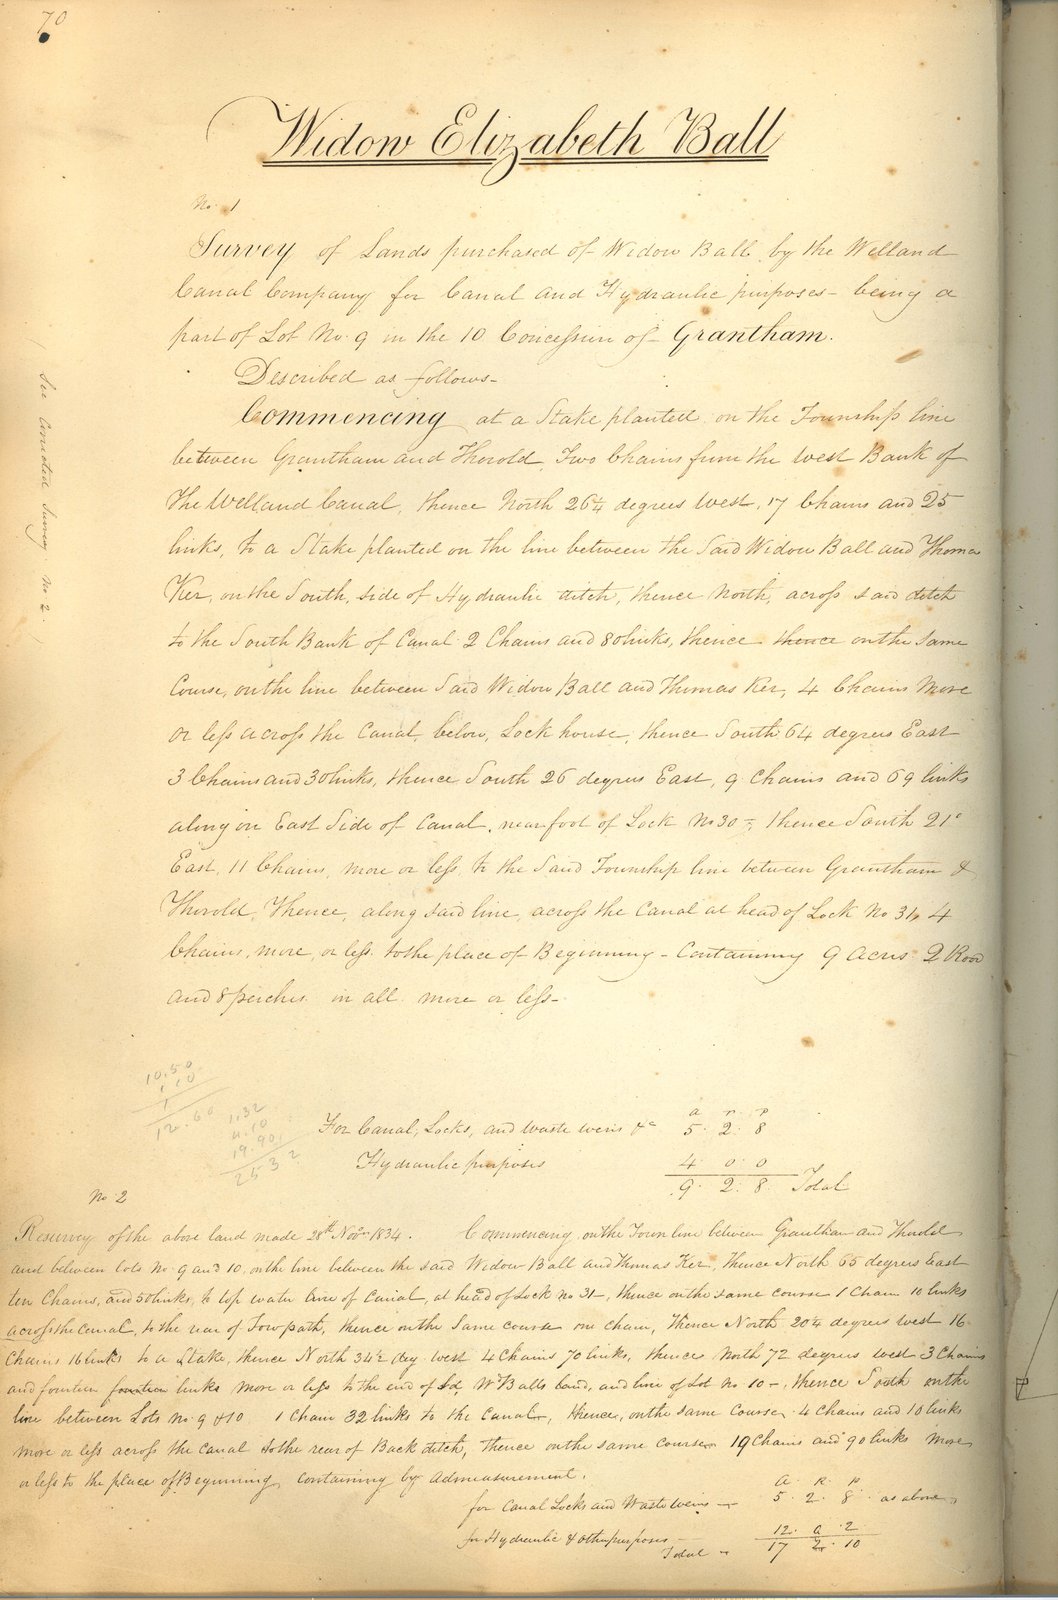 70
Widow Elizabeth Ball
No. 1
Survey of Lands purchased of Widow Ball by the Welland
Canal Company for Canal and Hydraulic purposes - being a
part of Lot No. 9 in the 10 Concession of Grantham.
Described as follows-
Commencing at a Stake planted on the Township line
between Grantham and Thorold, Two Chains from the West Bank of
The Welland Canal, thence North 26¼ degrees West, 17 Chains and 25
links, to a Stake planted on the line between the Said Widow Ball and Thomas
Ker, on the South, side of Hydraulic ditch, thence North, across said ditch
to the South Bank of Canal 2 Chains and 80 links, thence thence on the same
Course, on the line between Said Widow Ball and Thomas Ker, 4 Chains More
or less across the Canal, below, Lock house, thence South 64 degrees East
3 Chains and 30 links, thence South 26 degrees East, 9 Chains and 69 links
along on East Side of Canal, near foot of Lock No 30 -, thence South 21°
East, 11 Chains, more or less, to the Said Township line between Grantham &
Thorold, Thence, along said line, across the Canal at head of Lock No 31, 4
Chains, more, or less to the place of Beginning - Containing 9 Acres 2 Rood
and 8 perches in all more or less-
(See Corrected Survey No 2.)
10.50
1.10
1
12.60
1.32
4.10
19.90
25 32
a r p
For Canal, Locks, and Waste weirs &c 5. 2. 8
Hydraulic purposes 4 0 0
9. 2. 8 Total
No 2
Resurvey of the above land made 28th Novr 1834. Commencing on the Town line between Grantham and Thorold
and between lots No. 9 and 10, on the line between the said Widow Ball and Thomas Ker, Thence North 65 degrees East
ten Chains, and 50 links, to top water line of Canal, at head of Lock No 31-, thence on the same course 1 Chain 10 links
across the Canal, to the rear of Tow path, thence on the Same course one chain, Thence North 20¼ degrees West 16
Chains 16 links to a Stake, thence North 34½ deg. west 4 Chains 70 links, thence North 72 degrees west 3 Chains
and fourteen fourteen links more or less to the end of Sd. Ww Balls land, and line of Lot No 10 -, thence South on the
line between Lots No 9 & 10 1 Chain 32 links to the Canal-, thence, on the same Course, 4 Chains and 10 links
more or less across the Canal to the rear of Back ditch, thence on the same course 19 Chains and 90 links More
or less to the place of Beginning, containing by admeasurement.
A. R. P
for Canal Locks and Waste weirs - 5. 2. 8 as above,
for Hydraulic & other purposes - 12. 0. 2
Total - 17 2. 10